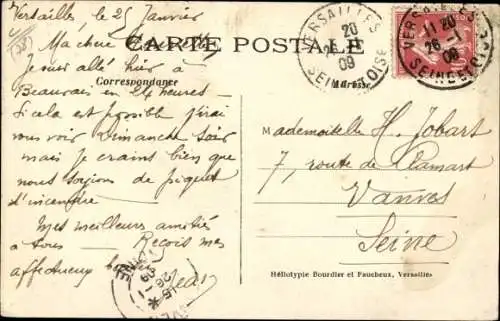 Versailles, le 25 Janvier
CARTE POSTALE
Ma chère
Je suis allé hier à
Correspondance
Adresse
Beauvais en 24 heures
Si cela est possible j'irai
vous voir Dimanche soir
mais je crains bien que
nous soyions de piquet
d'incendie
Mes meilleures amitiés
à tous Reçois mes
affectueux
Jean
VERSAILLES
20
09
SEINE ET OISE
VERSAILLES
11 20
26 -1
09
SEINE ET OISE
Mademoiselle H. Jobart
7, route de Clamart
Vanves
Seine
Héliotypie Bourdier et Faucheux, Versailles